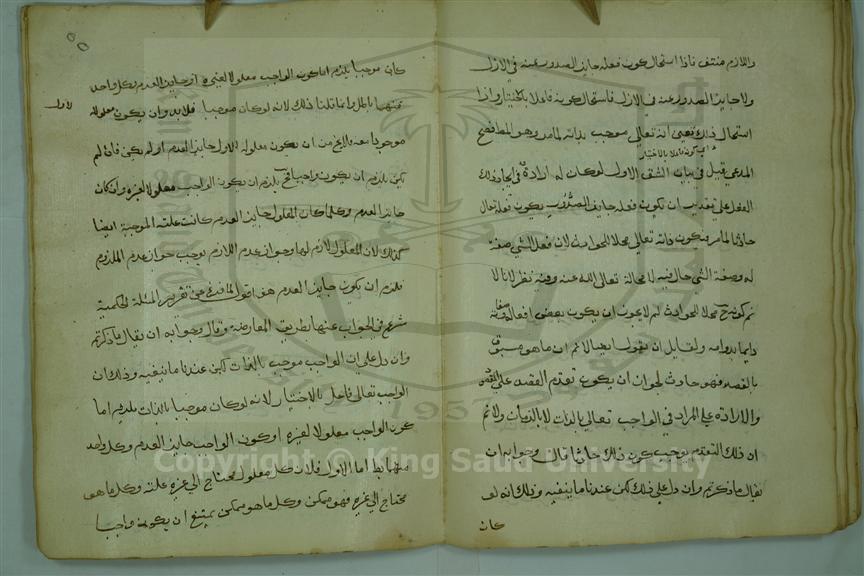 واللازم منتف فاذا استحال كون فعله جايز الصدور عنه في الازل
ولا جايز الصدور عنه في الازل فاستحال كونه فاعلا بالاختيار واذا
استحال ذلك تعين انه تعالى موجب بذاته لما مر وهو المط فصح
اي كونه فاعلا بالاختيار
المدعي قيل في بيان الشق الاول لو كان له ارادة في ايجاد ذلك
الفعل على تقدير ان يكون فعله جايز الصدور يكون فعله تعالى
حادثا لما مر فتكون ذاته تعالى محلا للحوادث لان فعل الشي صفة
له وصفة الشي حالة فيه لا محالة تعالى الله عنه وفيه نظر لانا لا
نم كونه ح محلا للحوادث لم لا يجوز ان يكون بعض افعاله وصفاته
دايما بدوامه ولقايل ان يقول ايضا لا نم ان ما هو مسبوق
بالقصد فهو حادث لجواز ان يكون تقدم القصد على المقصود
والارادة على المراد في الواجب تعالى بالذات لا بالزمان ولا نم
ان ذلك التقدم يوجب كون ذلك حادثا قال وجوابه ان
يقال ما ذكرتم وان دل على ذلك لكن عندنا ما ينفيه وذلك انه لو
كان
كان موجبا يلزم اما كون الواجب معلولا لغيره او جايز العدم وكل واحد
منهما باطل وانما قلنا ذلك لانه لو كان موجبا فلا بد وان يكون معلوله
الاول
موجودا معه فلا يخ من ان يكون معلوله الاول جايز العدم او لم يكن فان لم
يكن يلزم ان يكون واجبا فح يلزم ان يكون الواجب معلولا لغيره وان كان
جايز العدم وكلما كان المعلول جايز العدم كانت علته الموجبة ايضا
كذلك لان المعلول لازم لها وجواز عدم اللازم يوجب جواز عدم الملزوم
فلزم ان يكون جايز العدم هف اقول لما فرغ من تقرير المسئلة الحكمية
شرع في الجواب عنها بطريق المعارضة وقال وجوابه ان يقال ما ذكرتم
وان دل على ان الواجب موجب بالذات لكن عندنا ما ينفيه وذلك ان
الواجب تعالى فاعل بالاختيار لانه لو كان موجبا بالذات يلزم اما
كون الواجب معلولا لغيره او كون الواجب جايز العدم وكل واحد
منهما بط اما الاول فلان كل معلول محتاج الى غيره علته وكل ما هو
محتاج الى غيره فهو ممكن وكل ما هو ممكن يمتنع ان يكون واجبا
1957
Copyright © King Saud University